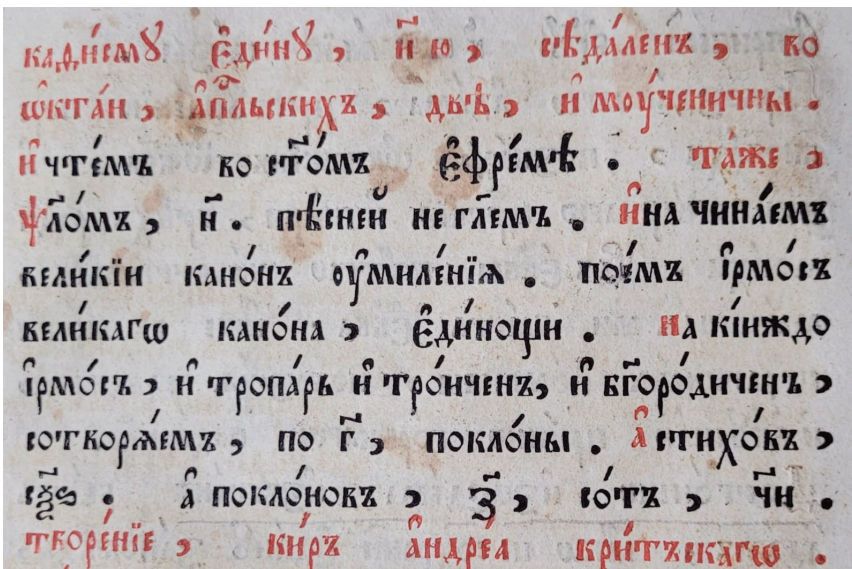 каѳи́смꙋ є҆ди́нꙋ , и҃ ю , сѣда́ленъ , во
ѡ҆кта́и , а҆пⷭ҇льскихъ , двѣ̀ , и҆ моу́ченичны .
и҆ чте́мъ во ст҃о́мъ є҆фре́мѣ . та́же ,
ѱл҃о́мъ , н҃ . пѣсней не гл҃емъ . и҆ на чина́емъ
вели́кїи кано́нъ оу҆миле́нїѧ . пое́мъ і҆рмо́съ
вели́кагѡ кано́на , є҆ди́ноши . на кі́иждо
і҆рмо́съ , и҆ тропа́рь и҆ тро́иченъ, и҆ бг҃оро́диченъ ,
сотворѧ́емъ , по г҃ , покло́ны . а҆ стихо́въ ,
сѯ҃ѕ . а҆ покло́новъ , ѱ҃ , со́тъ , ч҃и .
творе́нїе , ки́ръ а҆ндре́а кри́тъскагѡ .